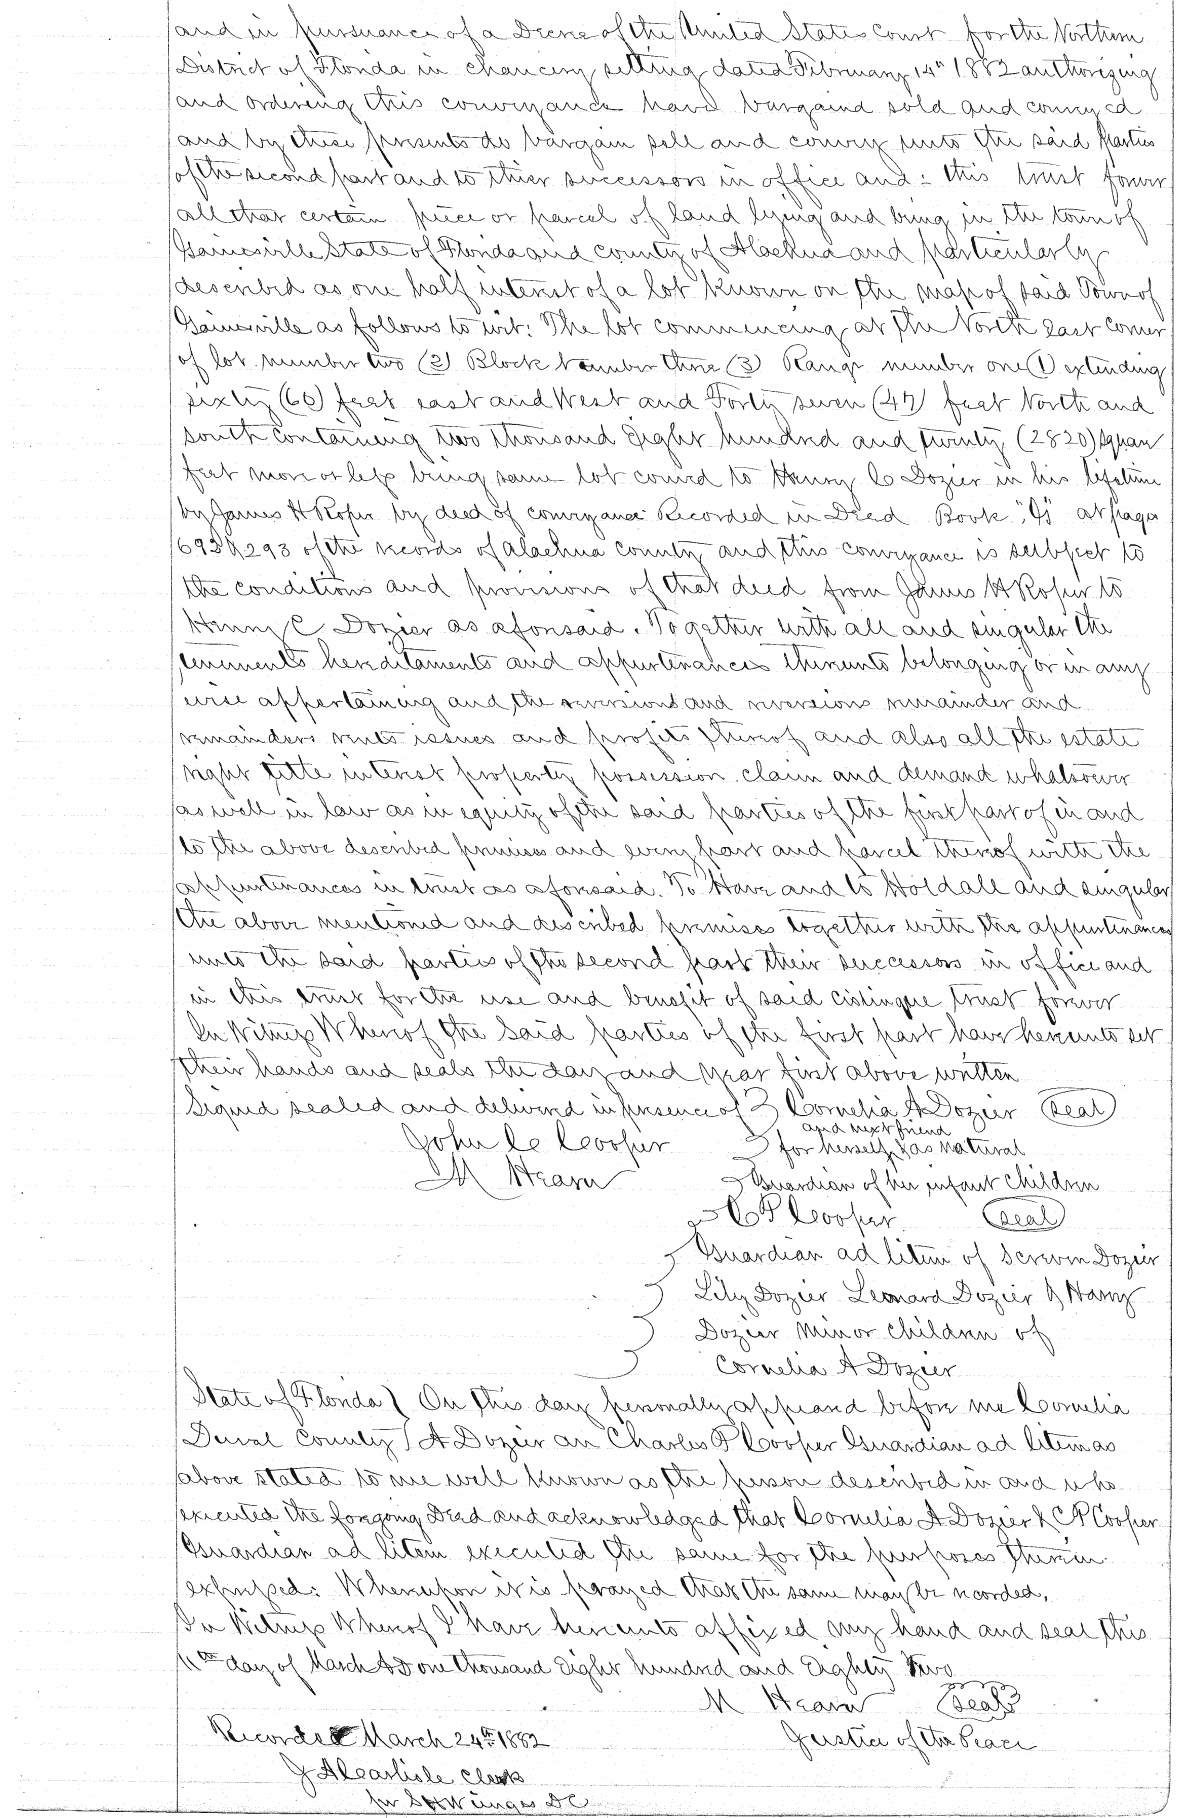 and in pursuance of a Decree of the United States Court for the Northern
District of Florida in chancery setting dated February 14th 1882 authorizing
and ordering this conveyance have bargaind sold and conveyed
and by these presents do bargain sell and convey unto the said Parties
of the second part and to thier successors in office and : this trust forever
all that certain piece or parcel of land lying and being in the town of
Gainesville State of Florida and county of Alachua and particularly
described as one half interest of a lot known on the map of said Town of
Gainesville as follows to wit: The lot commencing at the North east corner
of lot number two (2) Block Number three (3) Range number one (1) extending
sixty (60) feet east and West and Forty seven (47) feet North and
south containing two thousand Eight hundred and twenty (2820) square
feet more or less being same lot conved to Henry C Dozier in his lifetime
by James H Roper by deed of conveyance Recorded in Deed Book at pages
293 of the records of Alachua county and this conveyance is subject to
the conditions and provisions of that deed from James H Roper to
Henry C Dozier as aforesaid. Together with all and singular the
tenements hereditaments and appurtenances thereunto belonging or in any
wise appertaining and the reversions and reversions remainder and
remainders rents issues and profits thereof and also all the estate
right title interest property possession claim and demand whatsoever
as well in law as in equity of the said parties of the first part of in and
to the above described premises and every part and parcel thereof with the
appurtenances in trust as aforesaid. To Have and to Hold all and singular
the above mentioned and described premises together with the appurtenances
unto the said parties of the second part their successors in office and
in this trust for the use and benefit of said cistinque trust forever
In Witness Whereof the Said parties of the first part have hereunto set
their hands and seals the day and year first above written
Signed sealed and delivered in presence of Cornelia A Dozier (seal)
and next friend
John C Cooper for herself & as natural
M Hearn Guardian of her infant children
C P Cooper (seal)
Guardian ad litem of Screven Dozier
Lily Dozier Leonard Dozier & Harry
Dozier Minor children of
Cornelia A Dozier
State of Florida } On this day personally appeared before me Cornelia
Duval County } A Dozier an Charles P Cooper Guardian ad litem as
above stated to me well known as the person described in and who
executed the foregoing Deed and acknowledged that Cornelia A Dozier & C P Cooper
Guardian ad litem executed the same for the purposes therein
expressed: Whereupon it is prayed that the same may be recorded.
In Witness Whereof I have hereunto affixed my hand and seal this
11th day of March A D one thousand Eight hundred and Eighty Two
M Hearn (seal)
Recorded March 24th 1882 Justice of the Peace
J A Carlisle Clerk
per D C